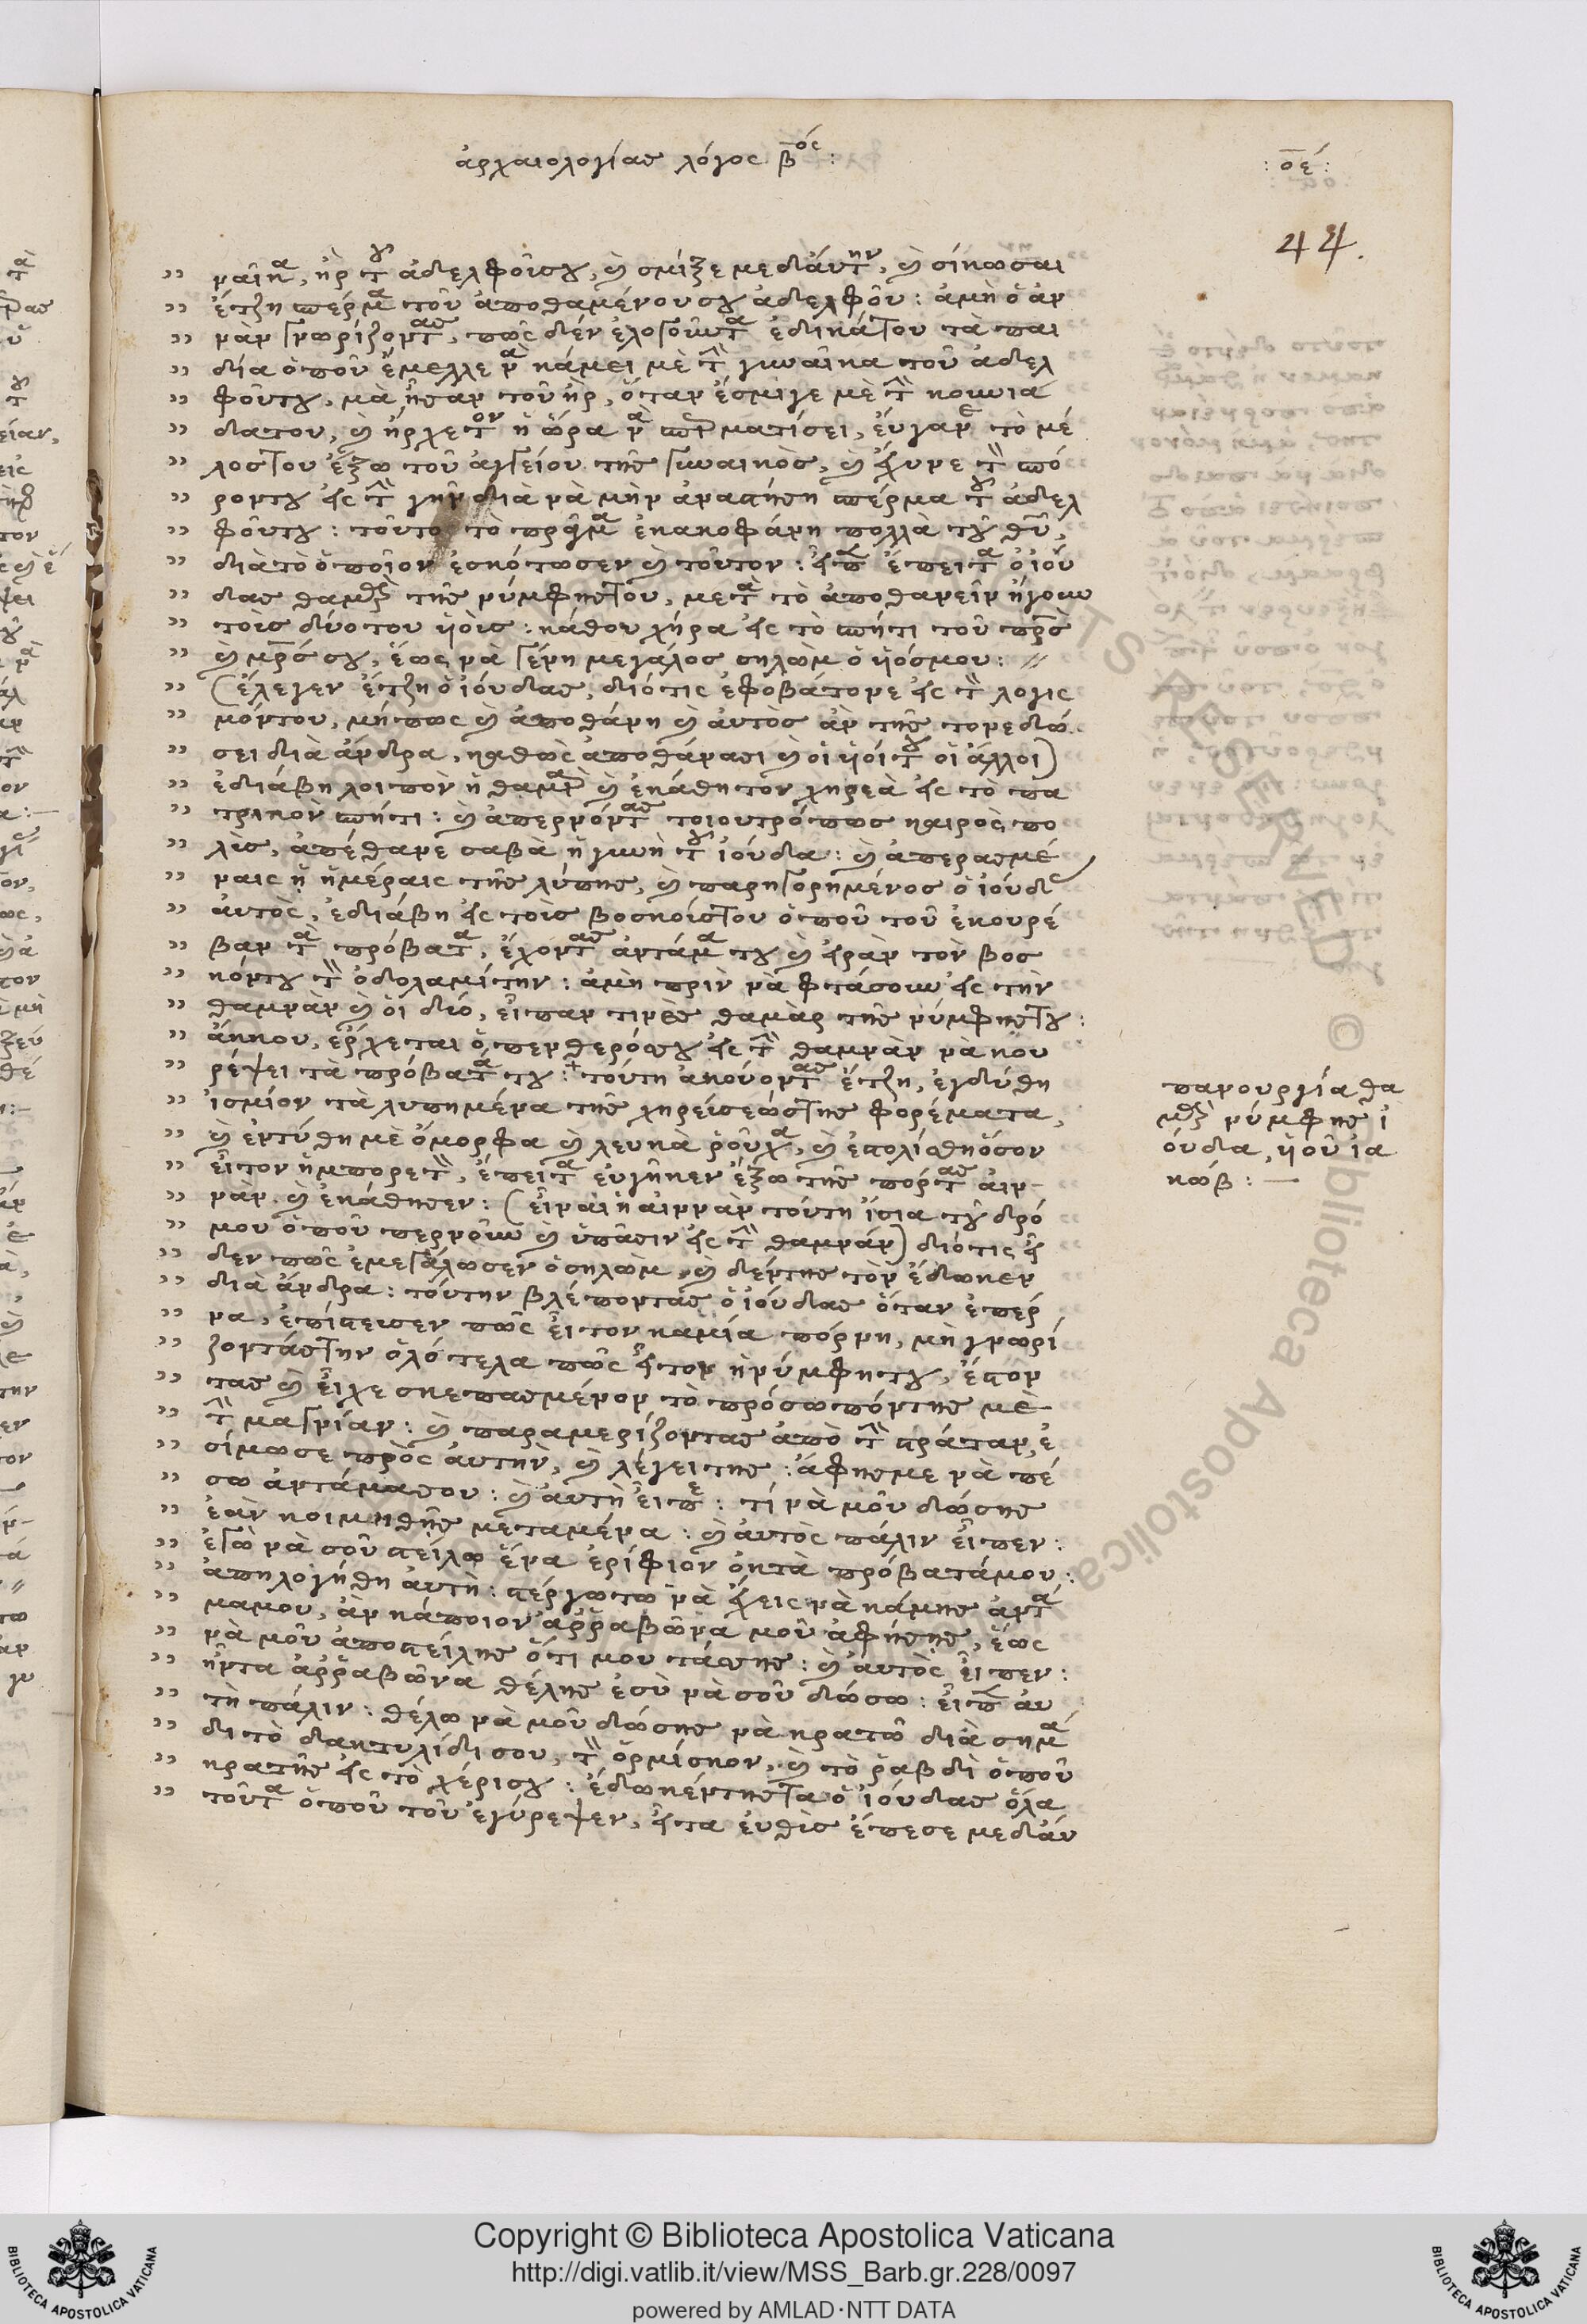 ἀρχαιολογίας λόγος β^ός:
:οέ:
44.
ναῖκα, ἦν τοῦ ἀδελφοῦσου, καὶ σμίξε μεδἀυτὴν, καὶ σίκωσαι
ἔτζη σπέρμα τοῦ ἀποθαμένου σου ἀδελφοῦ: ἀμὴ ὁ ἀν
νὰν γνωρίζοντας, πῶς δὲν ἐλογοῦντα ἐδικάτου τὰ παι
δία ὁποῦ ἔμελλε νὰ κάμει μὲ τὴ γυναῖκα τοῦ ἀδελ
φοῦτου, μὰ ἦσαν τοῦ ἦρ, ὅταν ἔσμιγε μὲ τὴ κουνιά
δατου, καὶ ἤρχετον ἡ ὥρα νὰ σπερματίσει, ἐύγανε τὸ μέ
λοςτου ἔξω τοῦ ἀγγείου τῆς γυναικὸς, καὶ ἔχυνε τὸ σπό
ροντου εἰς τὴ γῆν διὰ νὰ μὴν ἀναστήση σπέρμα τοῦ ἀδελ
φοῦτου: τοῦτο τὸ πρᾶγμα ἐκακοφάνη πολλὰ τοῦ θῦ,
διὰτὸ ὁποῖον ἐσκότωσεν καὶ τοῦτον: εἶπεν ἔπειτα ὁ ἰού
δας θαμὰρ τῆς νύμφηςτου, μετὰ τὸ ἀποθανεῖν ἤγουν
τοῖς δύοτου ὑιοῖς: κάθου χήρα εἰς τὸ σπήτι τοῦ πρς
καὶ μρς σου, ἕως νὰ γένη μεγάλος σηλὼμ ὁ ὑιόςμου: //
(ἔλεγεν ἔτζη ὁ ἰούδας, διότις ἐφοβάτονε εἰς τὸ λογις
μόντου, μήπως καὶ ἀποθάνη καὶ ἀυτὸς ἂν τῆς τονεδώ
σει διὰ ἄνδρα, καθὼς ἀποθάνασι καὶ οἱ ὑιοίτου οἱ ἄλλοι)
ἐδιάβη λοιπὸν ἡ θαμὰρ καὶ ἐκάθητον χηρεὰ εἰς τὸ πα
τρικὸν σπήτι: καὶ ἀπερνόντας τοιουτρόπως καιρὸς πο
λὶς, ἀπέθανε σαβὰ ἡ γυνὴ τοῦ ἰούδα: καὶ ἀπερασμέ
ναις ἡ ἡμέραις τῆς λύπης, καὶ παρηγορημένος ὁ ἰούδας
ἀυτὸς, ἐδιάβη εἰς τοῖς βοσκοίςτου ὁποῦ τοῦ ἐκουρέ
βαν τὰ πρόβατα, ἔχοντας ἀντάμα του καὶ εἰρὰν τὸν βος
κόντου τὸ ὀδολαμίτην: ἀμὴ πρὶν νὰ φτάσουν εἰς τὴν
θαμνὰν καὶ ὁι διό, εἶπαν τινὲς θαμὰρ τῆς νύμφηςτου:
ἄκκου, ἔρχεται ὁ πενθερόςσου εἰς τὴ θαμνὰν νὰ κου
ρέψει τὰ πρόβατα του:+ τούτη ἀκούοντας ἔτζη, ἐγδύθη
ἰσμίον τὰ λυπημένα τῆς χηρείσεώςτης φορέματα,
καὶ ἐντύθη μὲ ὄμορφα καὶ λευκὰ ῥοῦχα, καὶ ἐστολίσθη ὅσον
εἶτον ἠμπορετὸ, ἔπειτα ἐυγῆκεν ἔξω τῆς πόρτας ἀιν-
νὰν καὶ ἐκάθησεν: (εἶναι ἡ ἀιννὰν τούτη ἴσια τοῦ δρό
μου ὁποῦ περνοῦν καὶ ὑπᾶσιν εἰς τὴ θαμνάν) διότις εἶ
δεν πῶς ἐμεγάλωσεν ὁ σηλὼμ, καὶ δέντης τὸν ἔδωκεν
διὰ ἄνδρα: τούτην βλέποντάς ὁ ἰούδας ὅταν ἐπέρ
να, ἐπίστεισεν πῶς εἶτον καμία πόρνη, μὴ γνωρί
ζοντάςτην ὁλότελα πῶς εἶτον ἡ νύμφητου, ἔστον
τας καὶ εἶχε σκεπασμένον τὸ πρόσωπόντης μὲ
τὴ μαγνίαν: καὶ παραμερίζοντας ἀπὸ τὴ στράταν, ἐ
σίμωσε πρὸς ἀυτὴν, καὶ λέγει της: ἄφησμε νὰ πέ
σω ἀντάμασου: καὶ ἀυτὴ εἶπε: τί νὰ μοῦ δώσης
ἐὰν κοιμηθῆς μεταμένα: καὶ ἀυτὸς πάλιν εἶπεν:
ἐγὼ νὰ σοῦ στείλω ἕνα ἐρίφιον ὀκτὰ πρόβατάμου:
ἀπηλογήθη ἀυτὴ: στέργωτω νὰ ἔχεις νὰ κάμης ἀντά
μαμου, ἂν κάποιον ἀῤῥαβῶνα μοῦ ἀφήσης, ἕως
νὰ μοῦ ἀποστείλης ὅτι μου τάσσης: καὶ ἀυτὸς εἶπεν:
κήντα ἀῤῥαβῶνα θέλης ἐσὺ νὰ σοῦ δώσω: εἶπεν ἀυ
τὴ πάλιν: θέλω νὰ μοῦ δώσης νὰ κρατῶ διὰ σημά
δι τὸ δακτυλίδι σου, τὸ ὁρμίσκον, καὶ τὸ ῥαβδὶ ὁποῦ
κρατῆς εἰς τὸ χέρισου: ἔδωκέντηςτα ὁ ἰούδας ὅλα
τοῦτα ὁποῦ τοῦ ἐγύρεψεν, εἶτα ἐυθὶς ἔπεσε μεδἀυ
πανουργία θα
μὰρ νύμφης ἰ
ούδα, ὑιοῦ ἰα
κώβ: —
Copyright © Biblioteca Apostolica Vaticana
http://digi.vatlib.it/view/MSS_Barb.gr.228/0097
powered by AMLAD·NTT DATA